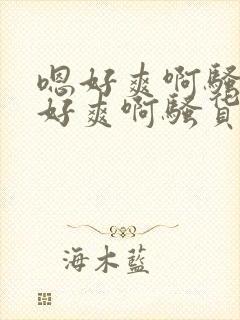 嗯好爽啊骚
好爽啊骚货
海木蓝